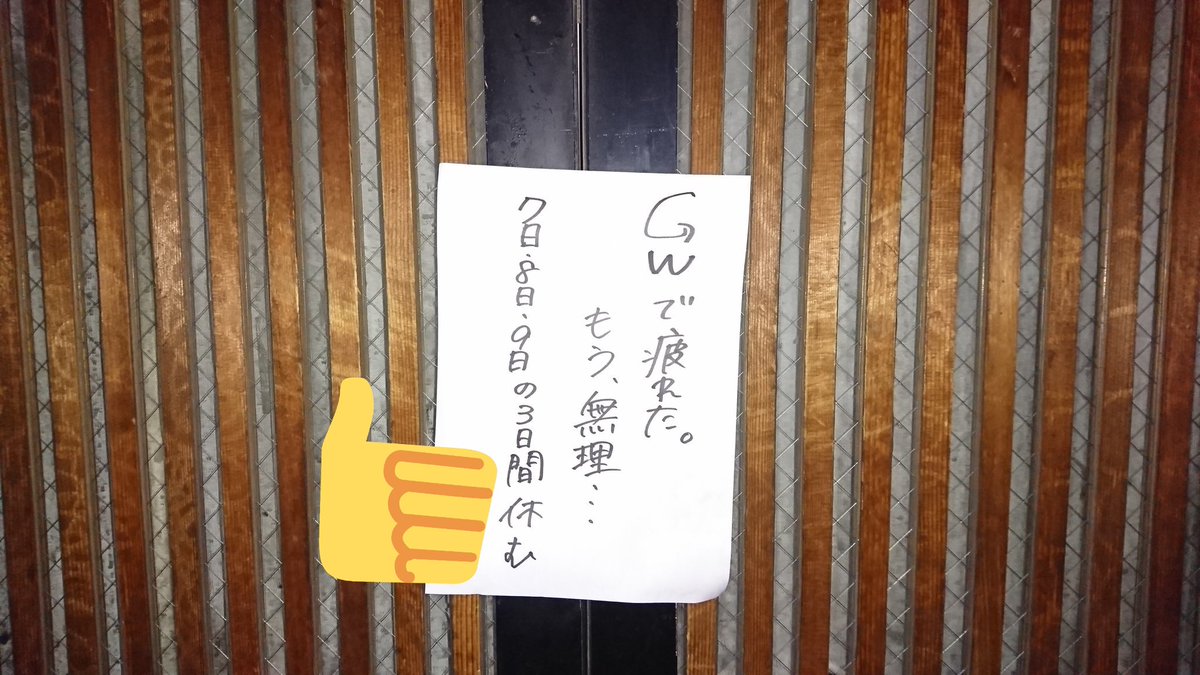 GWで疲れた。
もう、無理…
7日・8日・9日の3日間休む